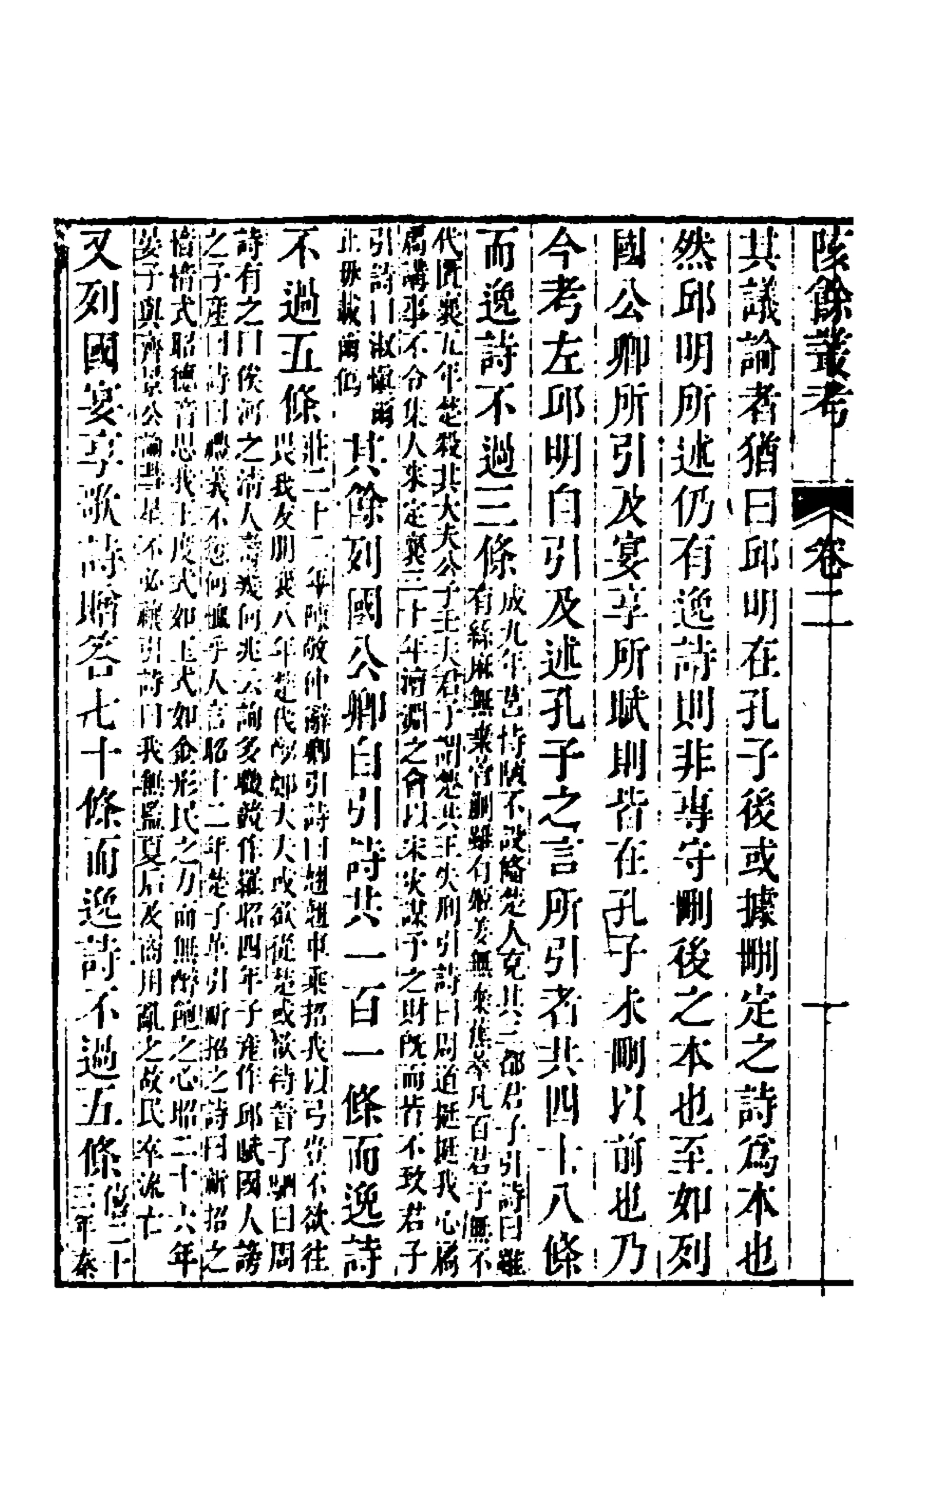 陔餘叢考 卷二 一
其議論者猶曰邱明在孔子後或據刪定之詩爲本也
然邱明所述仍有逸詩則非專守刪後之本也至如列
國公卿所引及宴享所賦則皆在孔子未刪以前也乃
今考左邱明自引及述孔子之言所引者共四十八條
而逸詩不過三條
成九年莒恃陋不設備楚人克其三都君子引詩曰雖
有絲麻無棄菅蒯雖有姬姜無棄蕉萃凡百君子無不
代匱襄五年楚殺其大夫公子壬夫君子謂楚共王失刑引詩曰周道挺挺我心扃
扃講事不令集人來定襄三十年澶淵之會以宋災謀予之財既而皆不致君子
引詩曰淑愼爾
止毋載爾僞
其餘列國公卿自引詩共一百一條而逸詩
不過五條
莊二十二年陳敬仲辭卿引詩曰翹翹車乘招我以弓豈不欲往
畏我友朋襄八年楚伐鄭鄭大夫或欲從楚或欲待晉子駟曰周
詩有之曰俟河之淸人壽幾何兆云詢多職競作羅昭四年子產作邱賦國人謗
之子產曰詩曰禮義不愆何恤乎人言昭十二年楚子革引祈招之詩曰祈招之
愔愔式昭德音思我王度式如玉式如金形民之力而無醉飽之心昭二十六年
晏子與齊景公論彗星不必禳引詩曰我無監夏后及商用亂之故民卒流亡
又列國宴享歌詩贈答七十條而逸詩不過五條
僖二十
三年秦